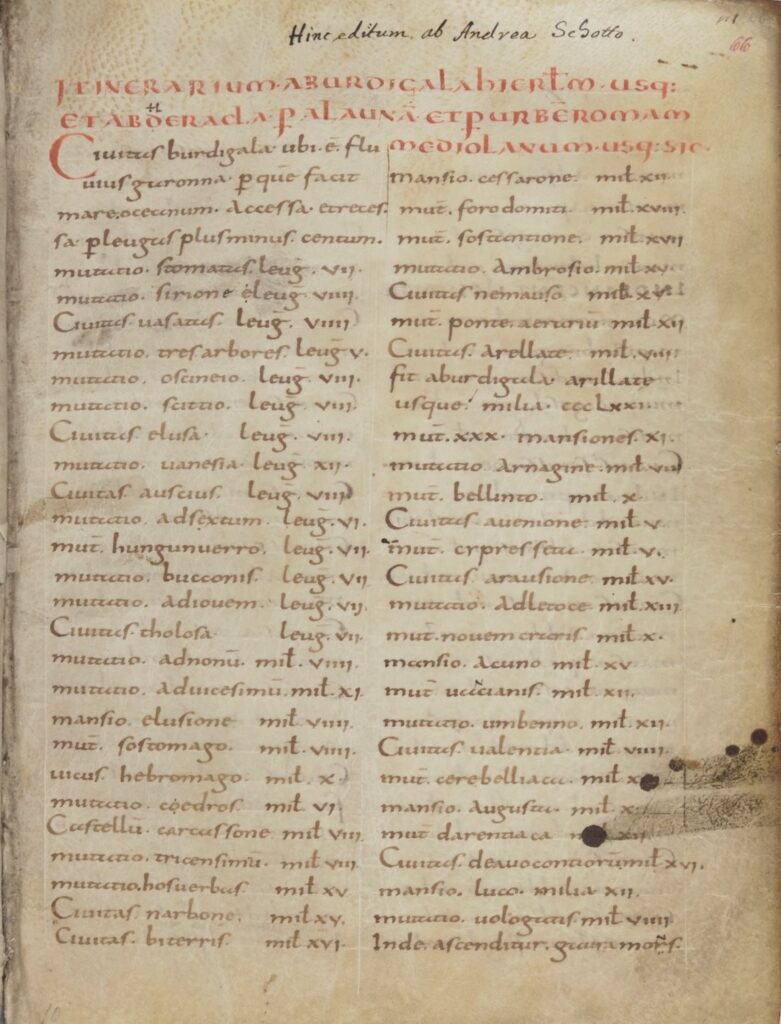 Hinc editum ab Andrea Schotto.
66
ITINERARIUM·ABURDIGALAHIERŁM·USQ:
ETABHERACLA·PALAUNĀ·ETPURBĒROMAM
MEDIOLANUM·USQ:SIC·
Civitas burdigala· ubi·ē·flu
uius garonna· ꝑ quē facit
mare·oceanum· Accessa· etreces
sa· ꝑleugas plusminus· centum·
mutatio· stomatas· leuḡ· VII·
mutatio· sirione· leuḡ· VIIII·
Civitas· uasatas· leuḡ· VIIII·
mutatio· tresarbores· leuḡ V·
mutatio· oscineio· leuḡ VIII·
mutatio· scittio· leuḡ VIII·
Civitas elusa· leuḡ· VIII·
mutatio· uanesia· leuḡ XII·
Civitas auscius· leuḡ VIII
mutatio· adsextum· leuḡ VI·
mut̄· hungunuerro· leuḡ· VII·
mutatio· bucconis· leuḡ VII
mutatio· adiouem· leuḡ VII·
Civitas· tholosa· leuḡ· VII·
mutatio· adnonū· mił VIIII·
mutatio· aduicesimū· mił XI·
mansio· elusione mił VIIII·
mut̄· sostomago· mił VIIII·
uicus· hebromago· mił X·
mutatio· cedros· mił VI·
Castellū· carcassone mił VIII
mutatio· tricensimū· mił VIII
mutatio·hosuerbas mił XV
Civitas narbone· mił XV·
Civitas· biterris· mił XVI·
mansio· cessarone· mił XII·
mut̄· forodomiti· mił XVIII·
mut̄· sostantione· mił XVII
mutatio· Ambrosio· mił XV·
Civitas nemauso mił XV·
mut̄· ponte·aerariū mił XII
Civitas· Arellate· mił VIII·
fit aburdigala· arillate
usque· milia· CCCLXXI·
mut̄· XXX· mansiones· XI·
mutatio Arnagine· mił VIII
mut̄· bellinto· mił· X·
Civitas· auenione· mił V
mut̄· cypresseta· mił V·
Civitas· arausione· mił XV·
mutatio· Adletoce mił XIII
mut̄· nouemcraris mił X·
mansio· Acuno mił XV
mut̄ mił XII·
mutatio· umbenno· mił XII·
Civitas· ualentia· mił VIIII·
mut̄· cerebelliaca· mił
mansio· augusta· mił X·
mut̄ darentiaca XII
Civitas· deauocontiorū mił XVI·
mansio· luco· milia XII·
mutatio· uologatis· mił VIIII
Inde· ascenditur· gauramons·